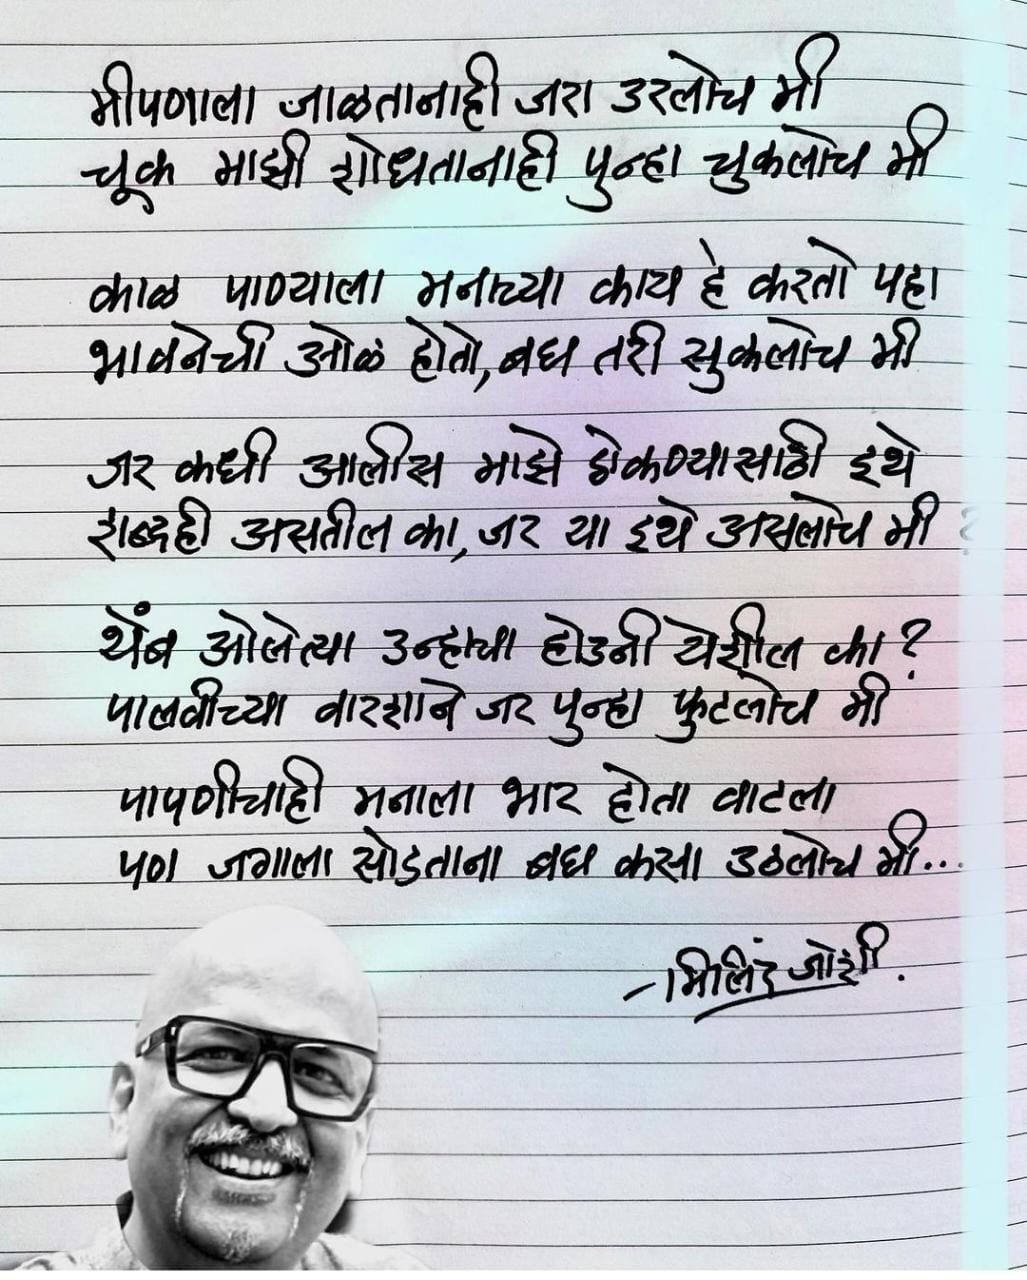 मीपणाला जाळतानाही जरा उरलोच मी
चूक माझी शोधतानाही पुन्हा चुकलोच मी
काळ पाण्याला मनाच्या काय हे करतो पहा
भावनेची ओळ होतो, बघ तरी सुकलोच मी
जर कधी आलीस माझे डोकण्यासाठी इथे
शब्दही असतील का, जर या इथे असलोच मी ?
थेंब ओलेत्या उन्हाचा होउनी येशील का ?
पालवीच्या वारशाने जर पुन्हा फुटलोच मी
पापणीचाही मनाला भार होता वाटला
पण जगाला सोडताना बघ कसा उठलोच मी...
- मिलिंद जोशी.